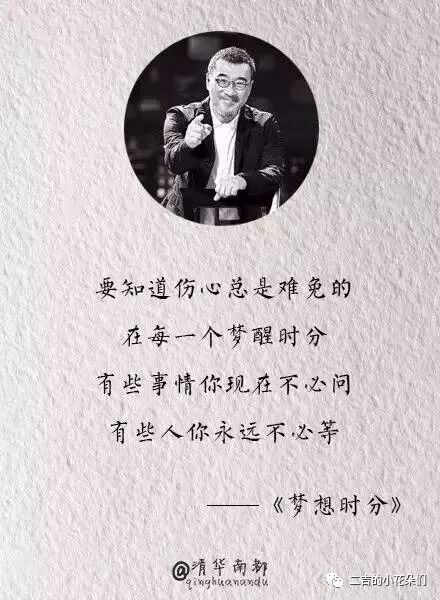 要知道伤心总是难免的
在每一个梦醒时分
有些事情你现在不必问
有些人你永远不必等
——《梦想时分》
@清华南都
qinghuanandu
二吉的小花朵们